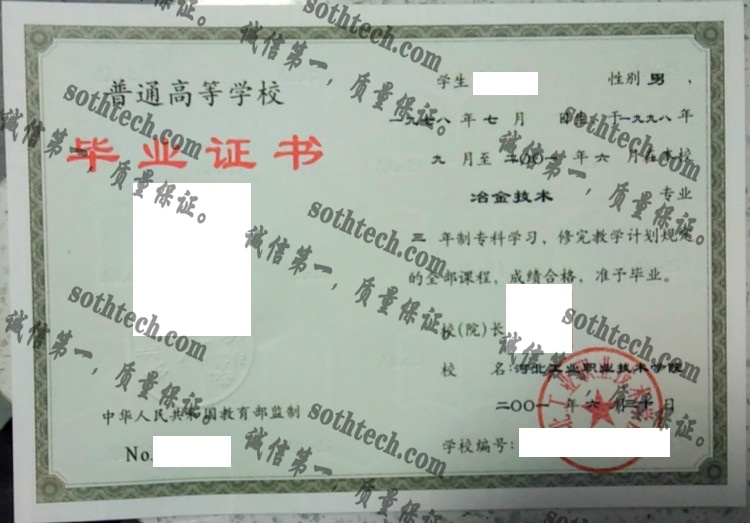 普通高等学校
毕业证书
中华人民共和国教育部监制
No.
学生 性别 男 ,
一九七八 年 七 月 日生,于一九九八年
九 月至 二〇〇一 年 六 月在本校
冶金技术 专业
三 年制专科学习,修完教学计划规定
的全部课程,成绩合格,准予毕业。
校(院)长
校 名:河北工业职业技术学院
二〇〇一 年 六 月 三十 日
学校编号:
sothtech.com
诚信第一,质量保证。
sothtech.com
诚信第一,质量保证。
sothtech.com
诚信第一,质量保证。
sothtech.com
诚信第一,质量保证。
sothtech.com
诚信第一,质量保证。
sothtech.com
诚信第一,质量保证。
sothtech.com
诚信第一,质量保证。